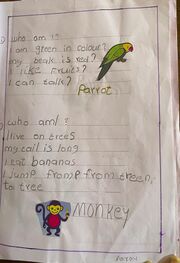 who am I?
I am green in colour?
my beak is red?
I like Fruits?
I can talk?
Parrot
who am I ?
I live on trees
my tail is long
I eat bananas
I jump from
to tree
Monkey